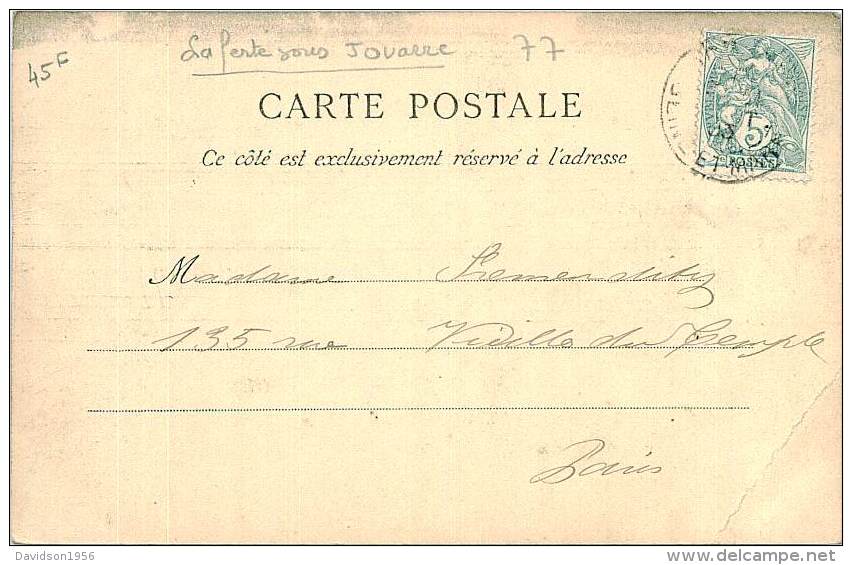 45F
La ferte sous JOUARRE 77
CARTE POSTALE
Ce côté est exclusivement réservé à l'adresse
5c
POSTES
SEINE
ET M
Madame
135 rue Vieille du Temple
Paris
Davidson1956
www.delcampe.net